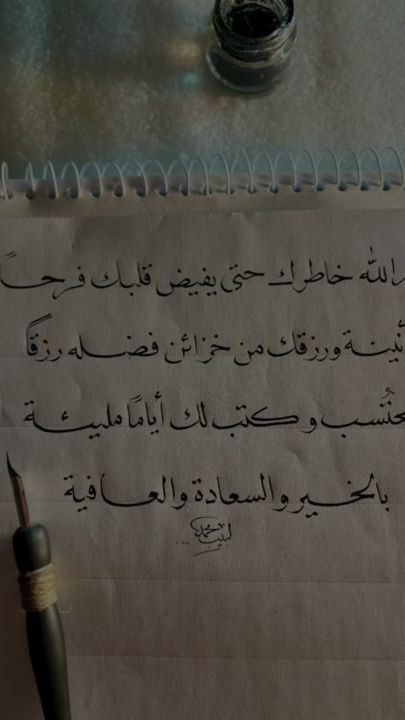 الله خاطرك حتى يفيض قلبك فرحاً
ورزقك من خزائن فضله رزقاً
وكتب لك أيامًا مليئة
بالخير والسعادة والعافية